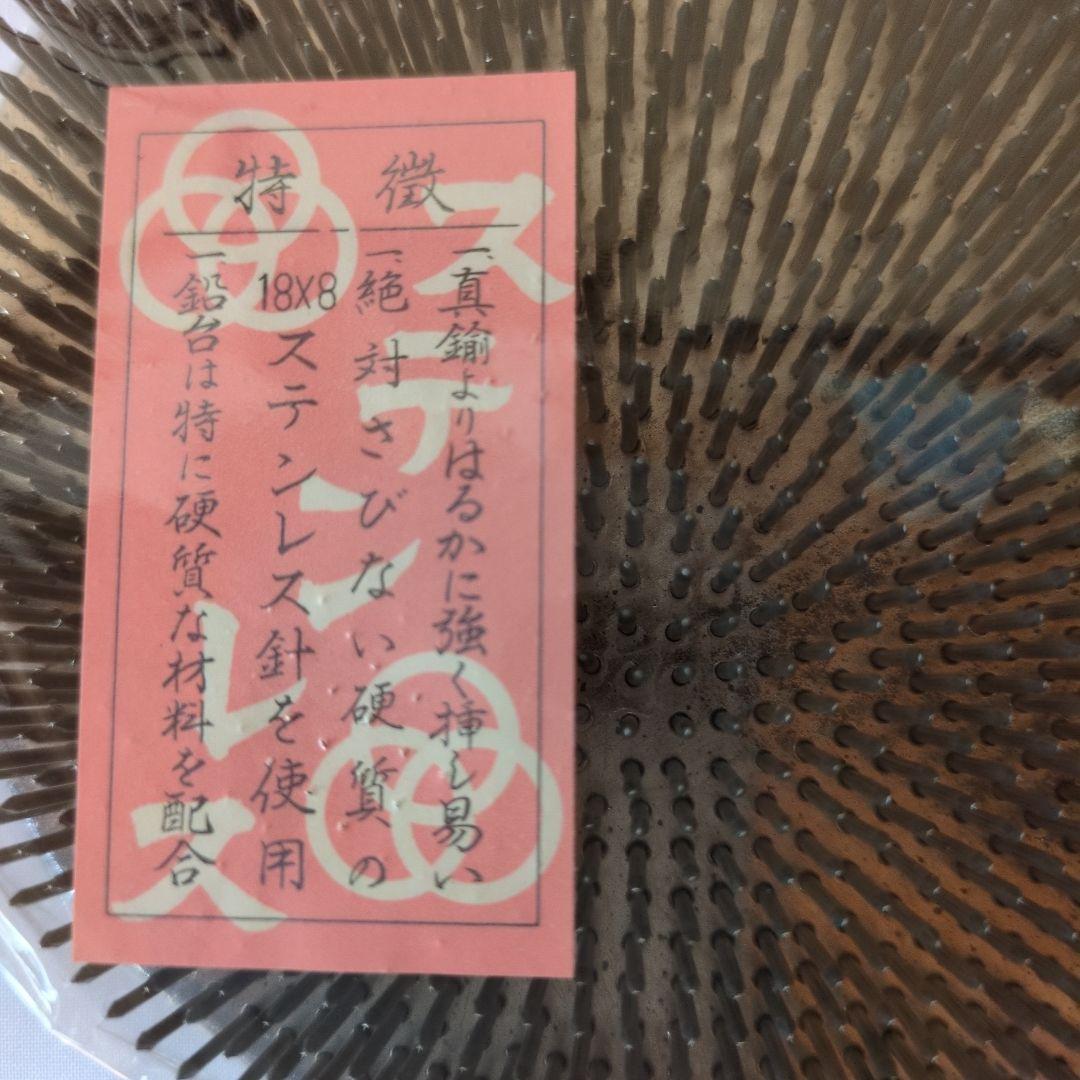 特徴
一、真鍮よりはるかに強く挿し易い
一、絶対さびない硬質の
18X8ステンレス針を使用
一、鉛台は特に硬質な材料を配合
ステンレス